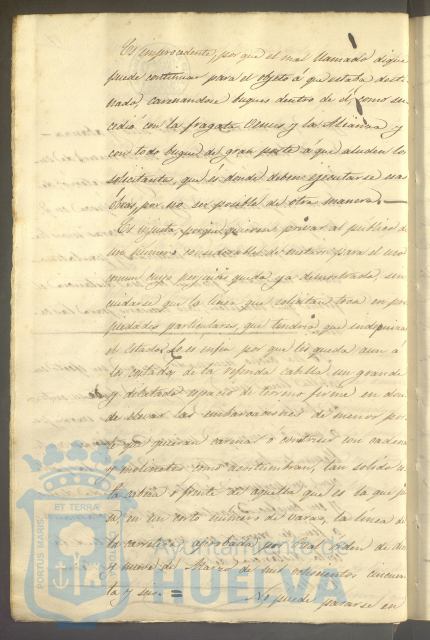 Es improcedente, por que el mal llamado dique
puede continuar para el objeto á que estaba desti
nado, carenandose buques dentro de él, como su
cedió con la fragata Venus y la Alianza y
con todo buque de gran porte a que aluden los
solicitantes, que és donde deben ejecutarse sus
óbras, por no ser posible de otra manera.
Es injusta, porque quieren privar al publico de
un número considerable de metros para el uso
comun cuyo perjuicio queda ya demostrado, sin
cuidarse que la linea que solicitan toca en pro
piedades particulares, que tendria que indemnizar
el Estado. Lo es infin por que les queda aun á
los costados de la referida cabilla un grande
y dilatado espacio de terreno firme en don
de elevar las embarcaciones de menor por
te que quieran carenar o construir con cadenas
y molinetes como acostumbran, tan solido
la cabina o frente de aquella que es la que
en un corto número de varas, la linea de
la carretera aprobada por Real orden de diez
y nueve de Marzo de mil ochocientos cincuen
ta y seis. = No puede pararse en
PORTUS MARIS ET TERRAE
Ayuntamiento de
HUELVA